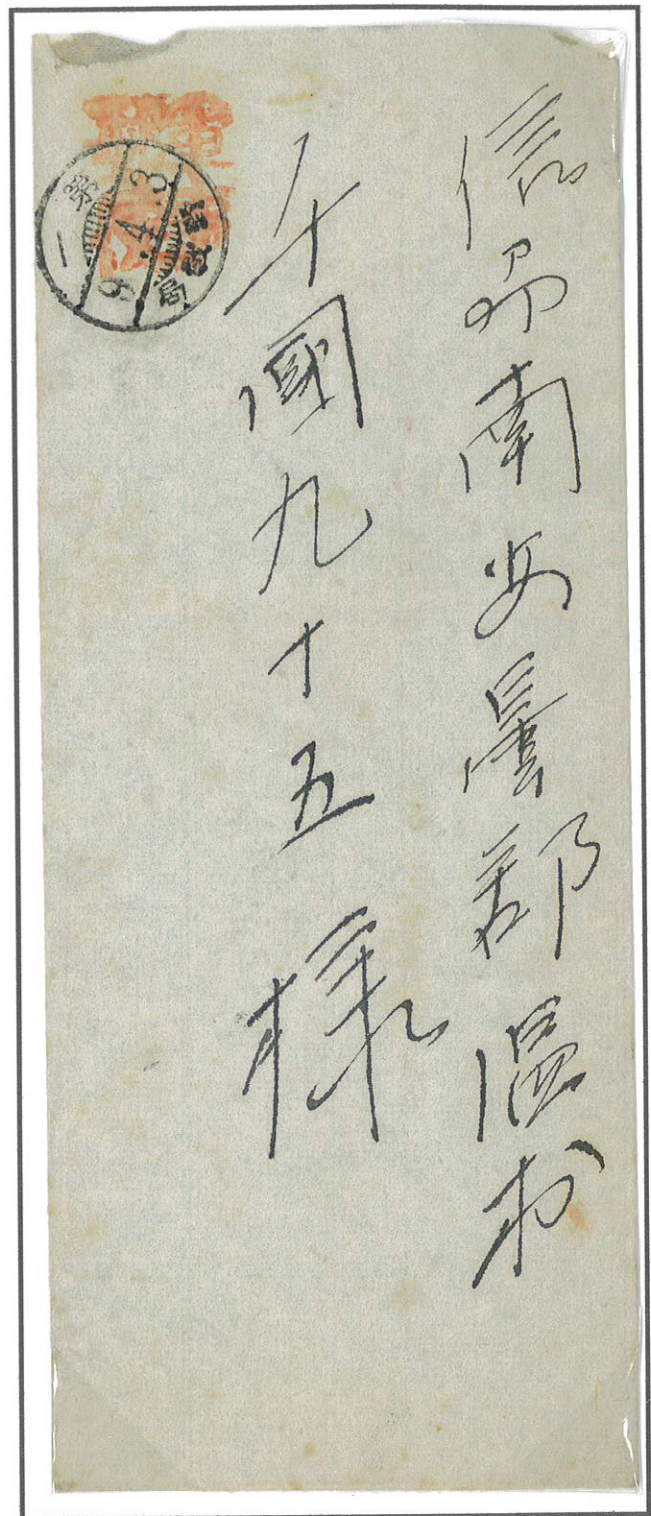 信州南安曇郡温村
千國九十五様
9.4.3